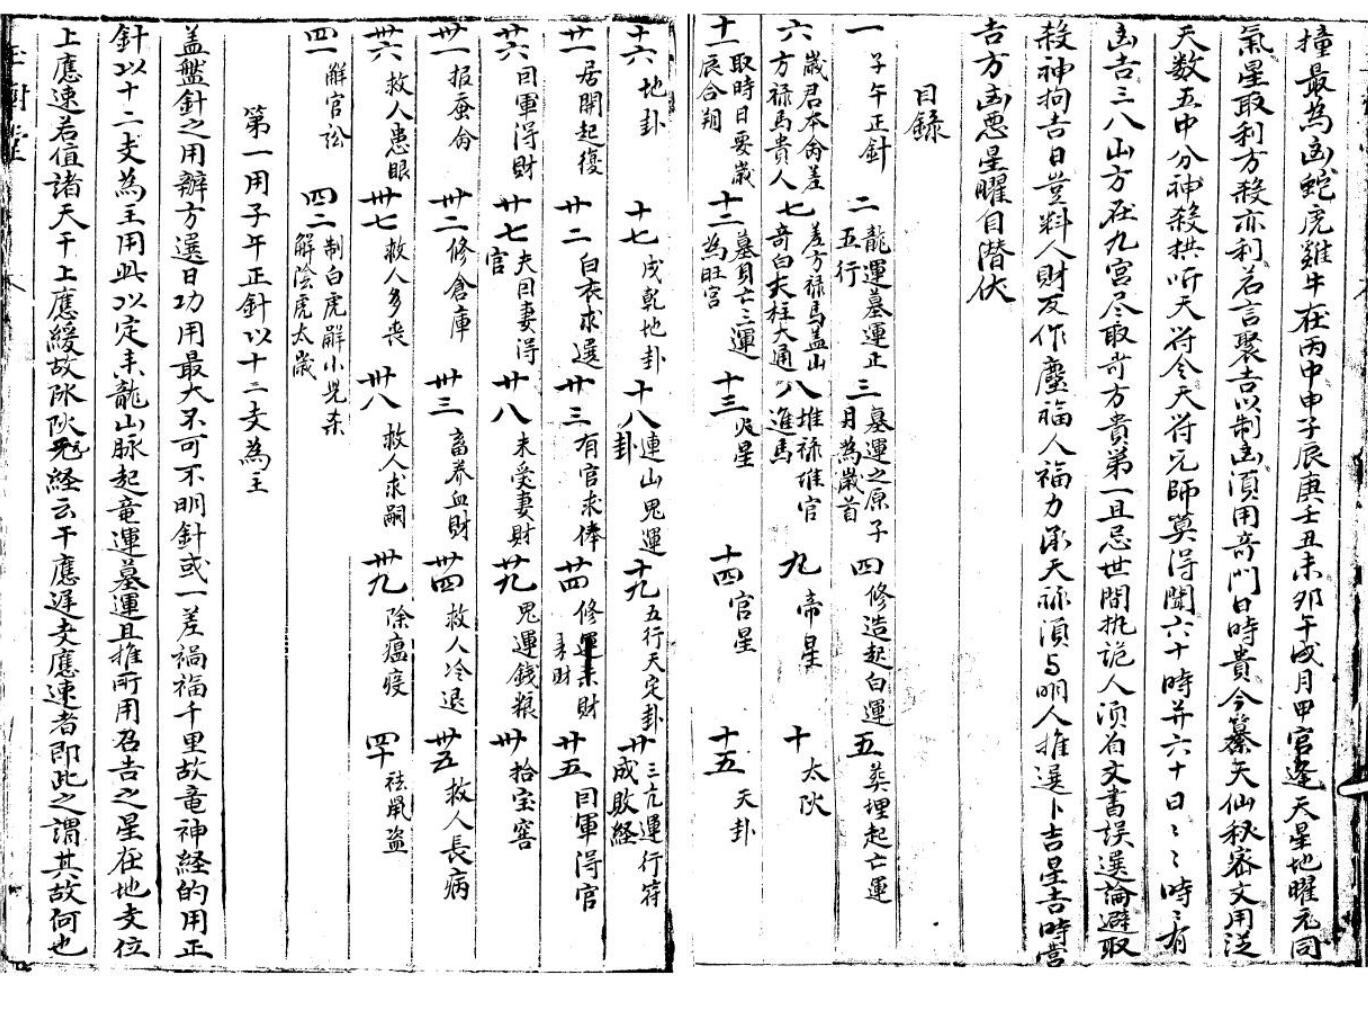 撞最為凶蛇虎雞牛在丙申申子辰庚壬丑未卯午戌月甲官逢天星地曜元同
氣星取利方殺亦利若言聚吉以制凶須用奇門日時貴今纂天仙秘密文用泛
天数五中分神殺拱听天符令天符元師莫得聞六十時并六十日〻時〻有
凶吉三八山方在九宮尽取奇方貴第一且忌世間执诡人须自文書误選論避取
殺神拘吉日豈料人財反作塵福人福力承天祿須与明人推選卜吉星吉時當
吉方凶惡星曜自潛伏
目錄
一 子午正針 二 龍運墓運正五行 三 墓運之原子月為歲首 四 修造起白運 五 葬埋起亡運
六 歲君本禽差方禄馬貴人 七 差方禄馬盖山奇白夫柱大通 八 堆禄堆官進馬 九 帝星 十 太阦
十一 取時日要歲辰合朔 十二 墓月亡三運為旺宫 十三 火星 十四 官星 十五 天卦
十六 地卦 十七 戌乾地卦 十八 連山鬼運卦 十九 五行天定卦 廿 三亢運行符成敗経
廿一 居開起復 廿二 白衣求選 廿三 有官求俸 廿四 修運未財 廿五 囙軍得官
廿六 囙軍得財 廿七 夫囙妻得官 廿八 未受妻財 廿九 鬼運錢粮 卅 拾宝窖
卅一 报蚕禽 卅二 修倉庫 卅三 畜养血財 卅四 救人冷退 卅五 救人長病
卅六 救人患眼 卅七 救人多丧 卅八 救人求嗣 卅九 除瘟疫 四十 祛鼠盗
四一 解官訟 四二 制白虎解小児杀解陰虎太歲
第一用子午正針以十二支為主
盖盤針之用辦方選日功用最大不可不明針或一差禍福千里故竜神経的用正
針以十二支為主用此以定来龍山脉起竜運墓運且推所用召吉之星在地支位
上應速若值諸天干上應緩故阦阦経云干應遲支應速者即此之謂其故何也